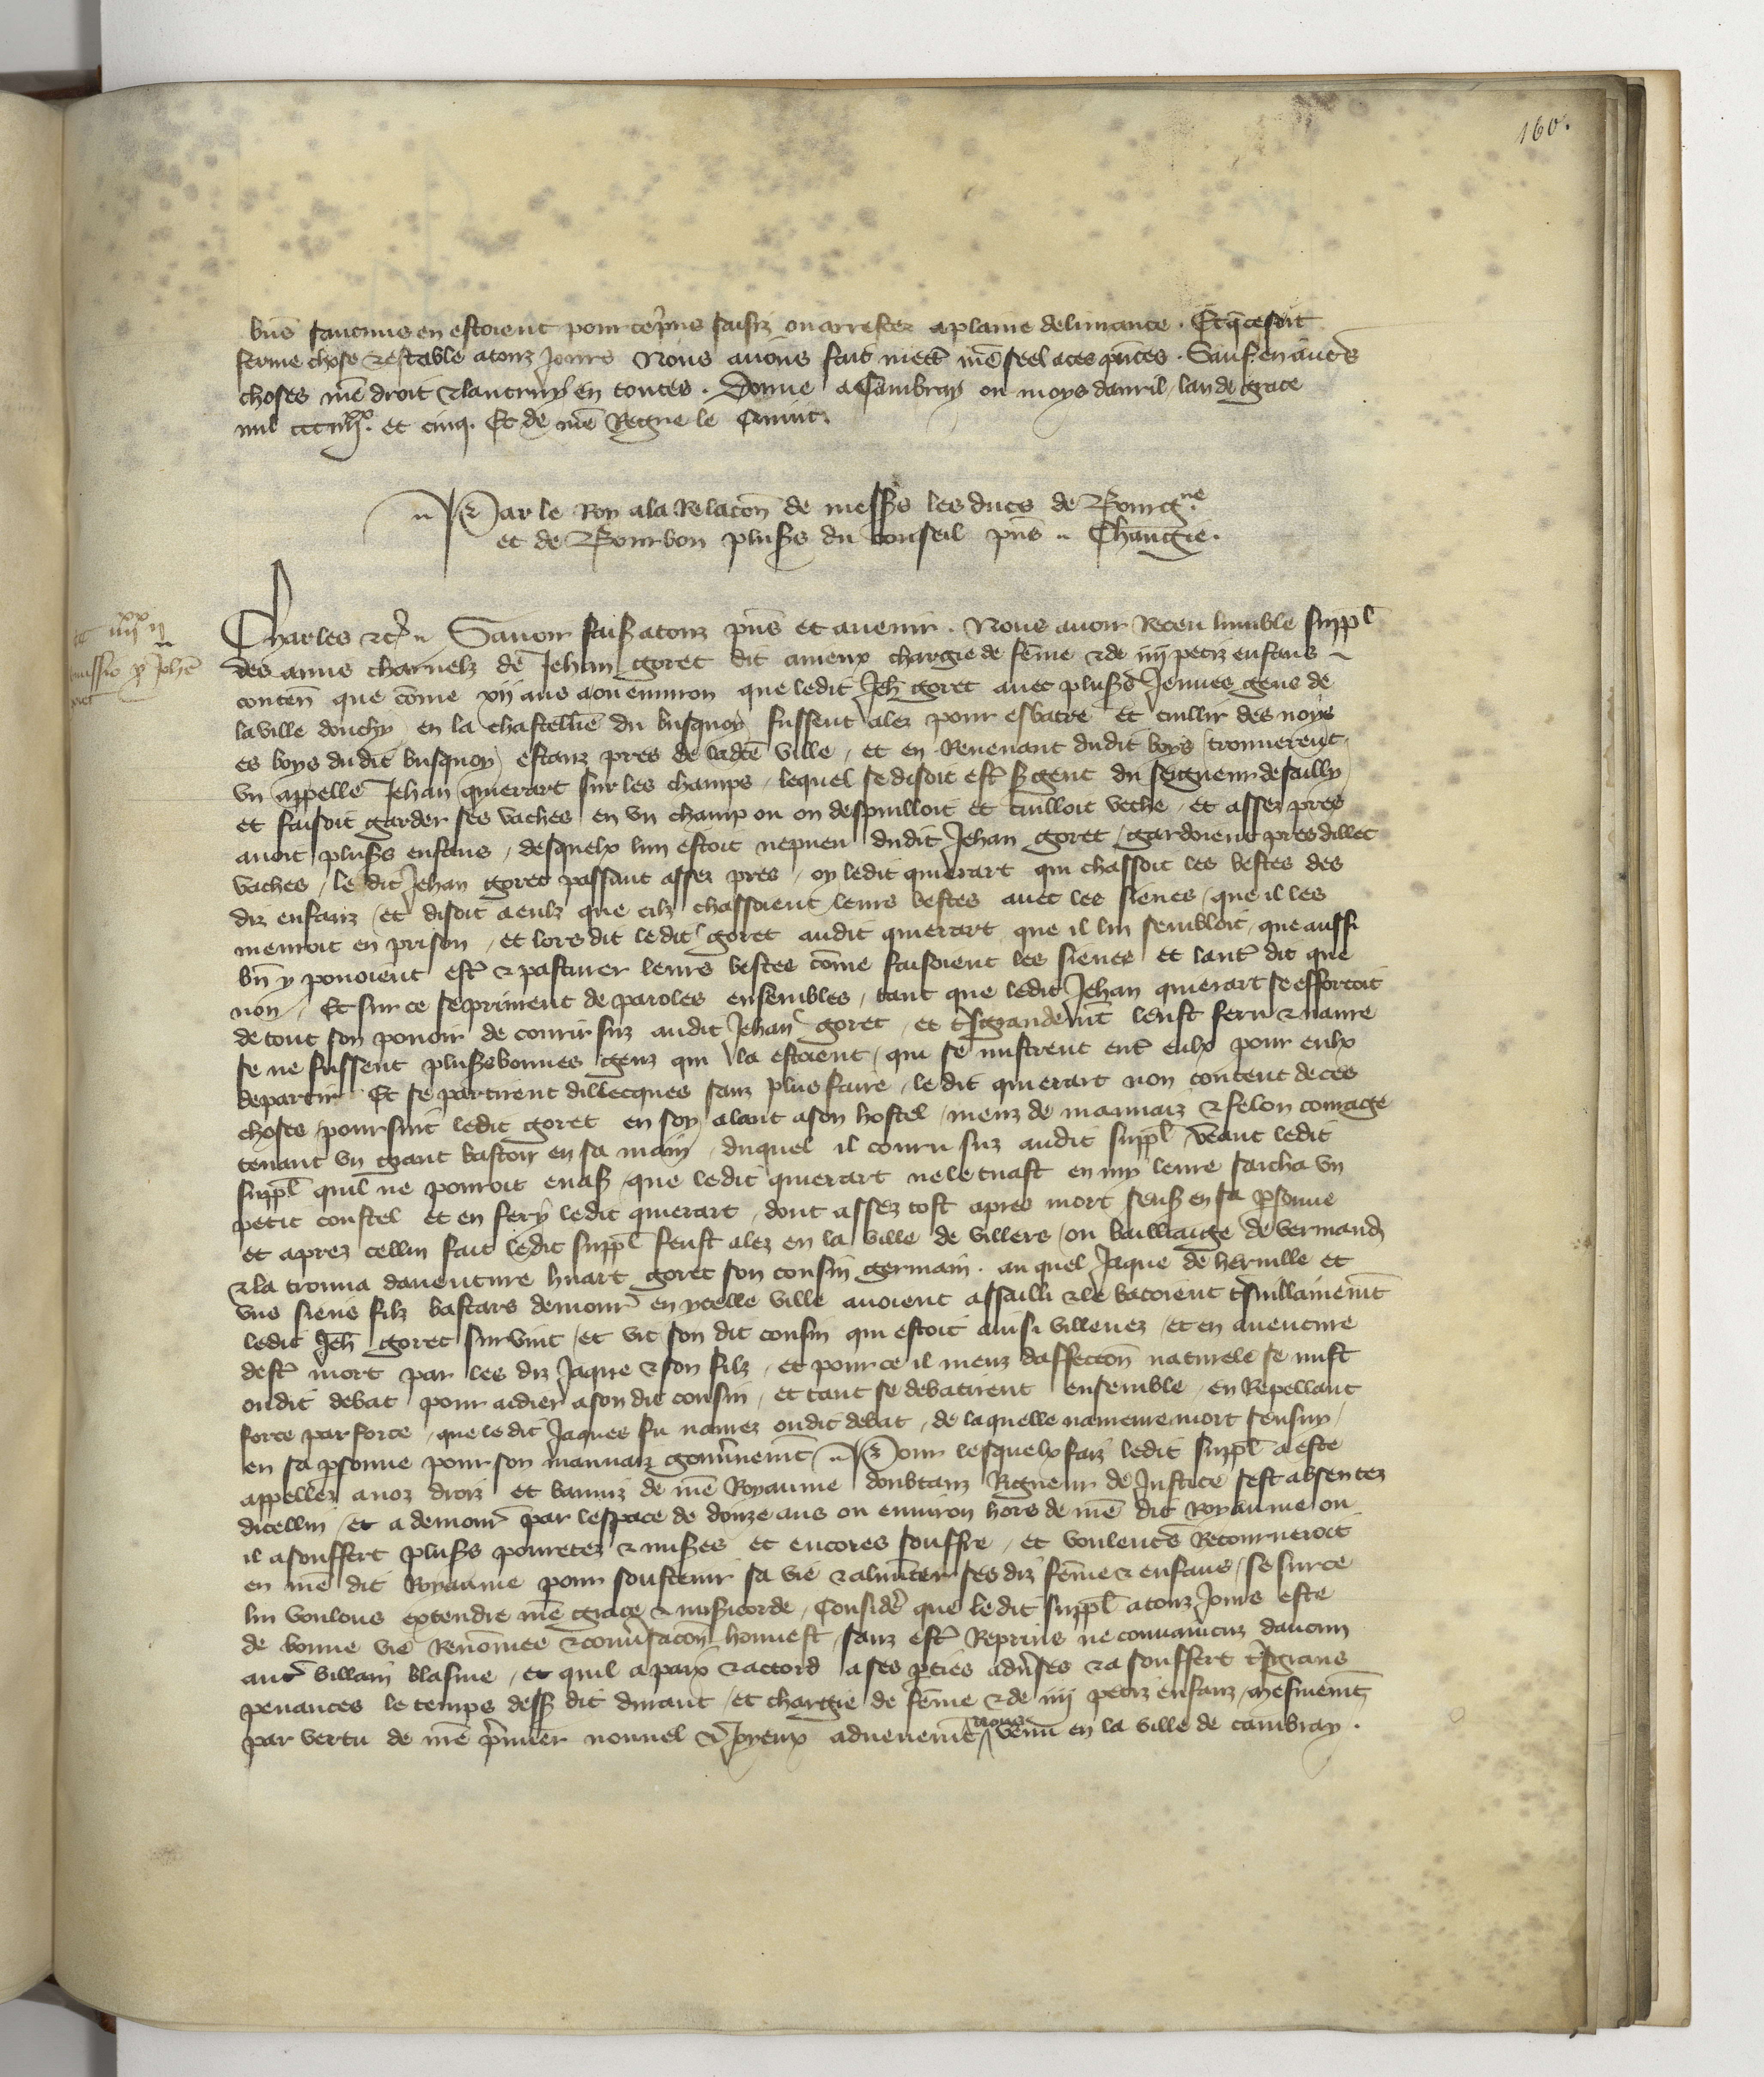 160.
biens s'aucuns en estoient pour ce prins saisiz ou arrestez a plaine delivrance. Et q̃ ce soit
ferme chose & estable a touz jours Nous avons fait mectr̃ nr̃e seel a ces p̃ntes. Sauf en autr̃s
choses nr̃e droit & lautruy en toutes. Donne a Cambray ou moys davril lan de grace
mil ccc iiij^xx. et cinq. Et de nr̃e Regne le quint.
Par le Roy a la Relacõn de mess̃s les ducs de Bourg^ne.
et de Bourbon plus̃s du conseil p̃ns .. Changie.
iiij^xx ij
Remissio p̃ Joh̃e
goret
Charles &c̃. Savoir fais̃ a touz p̃ns et avenir. Nous avoir Receu lumble suppl̃
des amis charnelz de Jehan goret dit ameux chargie de fẽme & de iiij petiz enfans
conten̄ que cõme xij ans a ou environ que ledit Jeh̃ goret avec plus̃s Jeunes gens de
la ville douchy en la chastellie du busquoy fussent alez pour esbatre et cuillir des noys
es boys dudit busquoy estanz pres de ladc̃e ville, et en Revenant dudit boys trouverent
un appelle Jehan quierart sur les champs, lequel se disoit estr̃ s̃gent du seigneur de sailly
et faisoit garder ses vaches en un champ ou on despuilloit et cuilloit veche, et assez pres
avoit plus̃s enfans, desquelx lun estoit nepveu dudit Jehan goret, gardoient pres dillec
vaches, le dit Jehan goret passant assez pres, oy ledit quierart qui chassoit les bestes des
diz enfanz et disoit a eulz que cilz chassoient leurs bestes avec les sienes, que il les
menroit en prison, et lors dit ledit goret audit quierart que il lui sembloit, que aussi
bñ y povoient estr̃ & pasturer leurs bestes cõme faisoient les sienes et lautr̃ dit que
non, Et sur ce se prinrent de paroles ensembles, tant que ledit Jehan quierart se efforcoit
de tout son povoir de courir sus audit Jehan goret, et tr̃sgrandem̃t leust feru & navre
se ne fussent plus̃s bonnes genz qui la estoient, qui se mistrent entr̃ eulx pour eulx
departir. Et se partirent dillecques sanz plus faire, ledit quierart non content de ces
choses poursuit ledit goret en soy alant a son hostel, meuz de mauvaiz & felon courage
tenant un grant baston en sa main, duquel il couru sus audit suppl̃ veant ledit
suppl̃ quil ne pouroit evas̃ que ledit quierart ne le tuast en my leure saicha un
petit coustel et en fery ledit quierart, dont assez tost apres mort sens̃ en sa p̃sonne
et aprez cellui fait ledit suppl̃ feust alez en la ville de villers, ou bailliaige de vermand̃
& la trouva daventure huart goret son cousin germain. au quel Jaque de herville et
uns siens filz bastars demour̃ en ycelle ville avoient assailli & le batoient tr̃svillainem̃t
ledit Jeh̃ goret survint, et vit son dit cousin qui estoit ainsi villenez, et en aventure
destr̃ mort par les diz Jaque & son filz, et pource il meuz daffection̄ naturele se mist
oudit debat pour aidier a son dit cousin, et tant se debatirent ensemble, en Repellant
force par force, que ledit Jaques fu navrez oudit debat, de laquelle navreure mort sensuy
en sa p̃sonne pour son mauvaiz gouv̄nem̃t. Pour lesquelx faiz ledit suppl̃ a este
appellez a noz droiz et banniz de nr̃e Royaume doubtanz Rigueur de Justice sest absentez
dicellui, et a demour̃ par lespace de douze ans ou environ hors de nr̃e dit Royaume ou
il a souffert plus̃s povretez & mis̃es et encores souffre, et voulentr̃s Retourneroit
en nr̃e dit Royaume pour soustenir sa vie & alim̃ter ses diz fẽme & enfans, se sur ce
lui voulons extendre nr̃e grace & mis̃icorde, Considẽr que ledit suppl̃ a touz jours este
de bonne vie Renõmee & conv̄sacõn honnest, sanz estr̃ Reprins ne convaincuz daucun
autr̃ villain blasme, et quil a paix & accord a ses p̃ties adv̄ses & a souffert tr̃sgrans
penances le temps dess̃ dit durant, et chargie de fẽme & de iiij petiz enfanz, mesmem̃t
par vertu de nr̃e p̃mier nouvel & joyeux advenem̃t a nous venu en la ville de cambray.